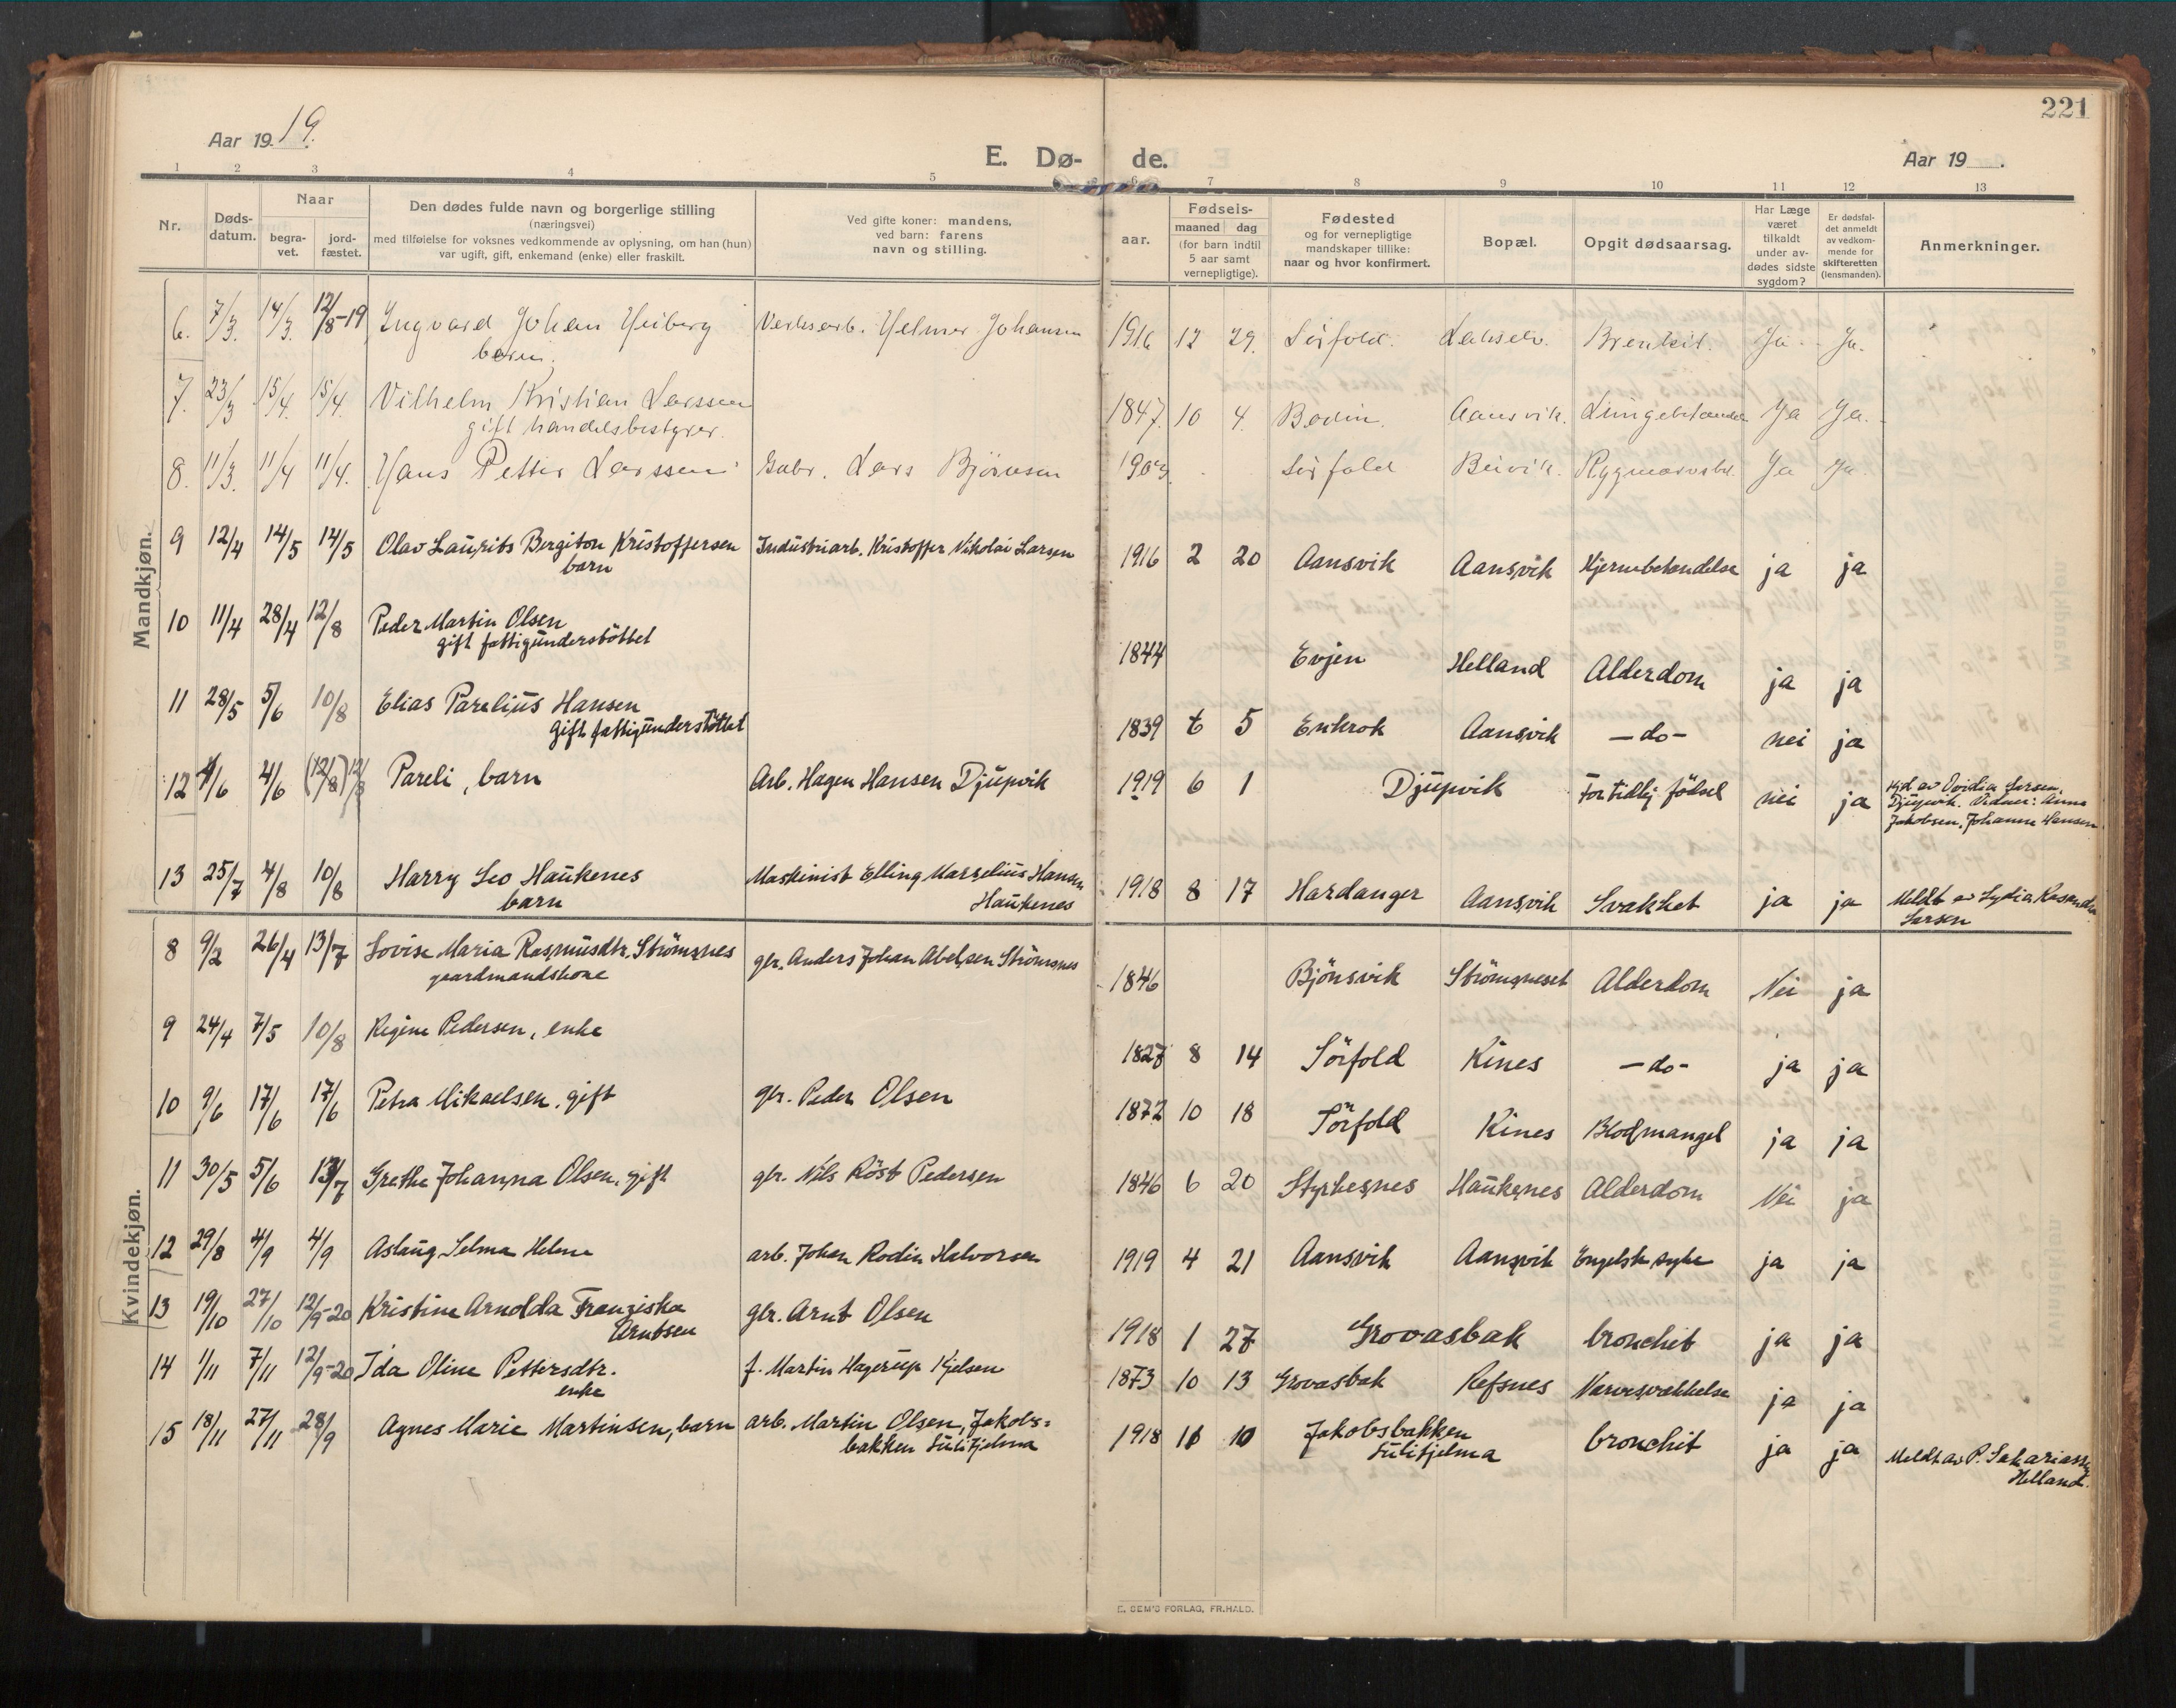 221
Aar 19 19.
E. Dø- de.
Aar 19 .
1 2 3 4 5 6 7 8 9 10 11 12 13
Nr. Døds-datum. Naar begra-vet. jord-fæstet. Den dødes fulde navn og borgerlige stilling (næringsvei) med tilføielse for voksnes vedkommende av oplysning, om han (hun) var ugift, gift, enkemand (enke) eller fraskilt. Ved gifte koner: mandens, ved barn: farens navn og stilling. aar. Fødsels- maaned dag (for barn indtil 5 aar samt vernepligtige). Fødested og for vernepligtige mandskaper tillike: naar og hvor konfirmert. Bopæl. Opgit dødsaarsag. Har Læge været tilkaldt under av-dødes sidste sygdom? Er dødsfal-det anmeldt av vedkom-mende for skifteretten (lensmanden). Anmerkninger.
Mandkjøn.
6. 7/3. 14/3. 12/8-19 Ingvard Johan Heiberg Verksarb. Helmer Johansen 1916 12 29. Sörfold. Lakselv. Ja Ja.
barn.
7. 23/3 15/4. 15/4. Vilhelm Kristian Larssen 1847. 10 4. Bodin. Aansvik. Ja Ja.
gift handelsbestyrer.
8. 11/3. 11/4 11/4. Hans Petter Larssen Gabr. Lars Bjørnsen 1903. Sörfold Ja Ja.
9 12/4 14/5 14/5 Olav Laurits Bergiton Kristoffersen Industriarb. Kristoffer Nikolai Larsen 1916 2 20 Aansvik Aansvik Hjernebetendelse ja ja
barn
10 11/4 28/4 12/8 Peder Martin Olsen 1844 Evjen Helland Alderdom ja ja
gift fattigunderstöttet
11 28/5 5/6 10/8 Elias Parelius Hansen 1839 6 5 Enkrok Aansvik -do- nei ja
gift fattigunderstöttet
12 4/6 4/6 (12/8) 12/8 Pareli, barn Arb. Hagen Hansen Djupvik 1919 6 1 Djupvik For tidlig födsel nei ja Hjd av Ovidia Larsen,
Djupvik. Vidner: Anna
Jakobsen, Johanne Hansen
13 25/7 4/8 10/8 Harry Leo Haukenes Maskinist Elling Marselius Hansen 1918 8 17 Hardanger Aansvik Svakhet ja ja Meldt av Lydia
barn Haukenes Larsen
Kvindekjøn.
8 9/2 26/4 13/7 Lovise Maria Rasmusdtr. Strömsnes gbr. Anders Johan Abelsen Strömsnes 1846 Bjönsvik Strömsneset Alderdom Nei ja
gaardmandskone
9 24/4 7/5 10/8 Regine Pedersen, enke 1827 8 14 Sörfold Kines -do- ja ja
10 9/6 17/6 17/6 Petra Mikaelsen, gift gbr. Peder Olsen 1872 10 18 Sörfold Kines Blodmangel ja ja
11 30/5 5/6 13/7 Grethe Johanna Olsen, gift gbr. Nils Röst Pedersen 1846 6 20 Styrkesnes Haukenes Alderdom Nei ja
12 29/8 4/9 4/9 Aslaug Selma Helene arb. Johan Rodin Halvorsen 1919 4 21 Aansvik Aansvik Engelsk syke ja ja
13 19/10 27/10 12/9-20 Kristine Arnolda Franziska gbr. Arnt Olsen 1918 1 27 Grovasbak bronchit ja ja
Arntsen
14 1/11 7/11 12/9-20 Ida Oline Pettersdtr. f. Martin Hagerup Kjelsen 1873 10 13 Grovasbak Refsnes Nervesvækkelse ja ja
enke
15 18/11 27/11 28/9 Agnes Marie Martinsen, barn arb. Martin Olsen, Jakobs- 1918 11 10 Jakobsbakken bronchit ja ja Meldt av P. Sakariassen
bakken Sulitjelma Sulitjelma Helland.
E. SEM'S FORLAG, FR.HALD.